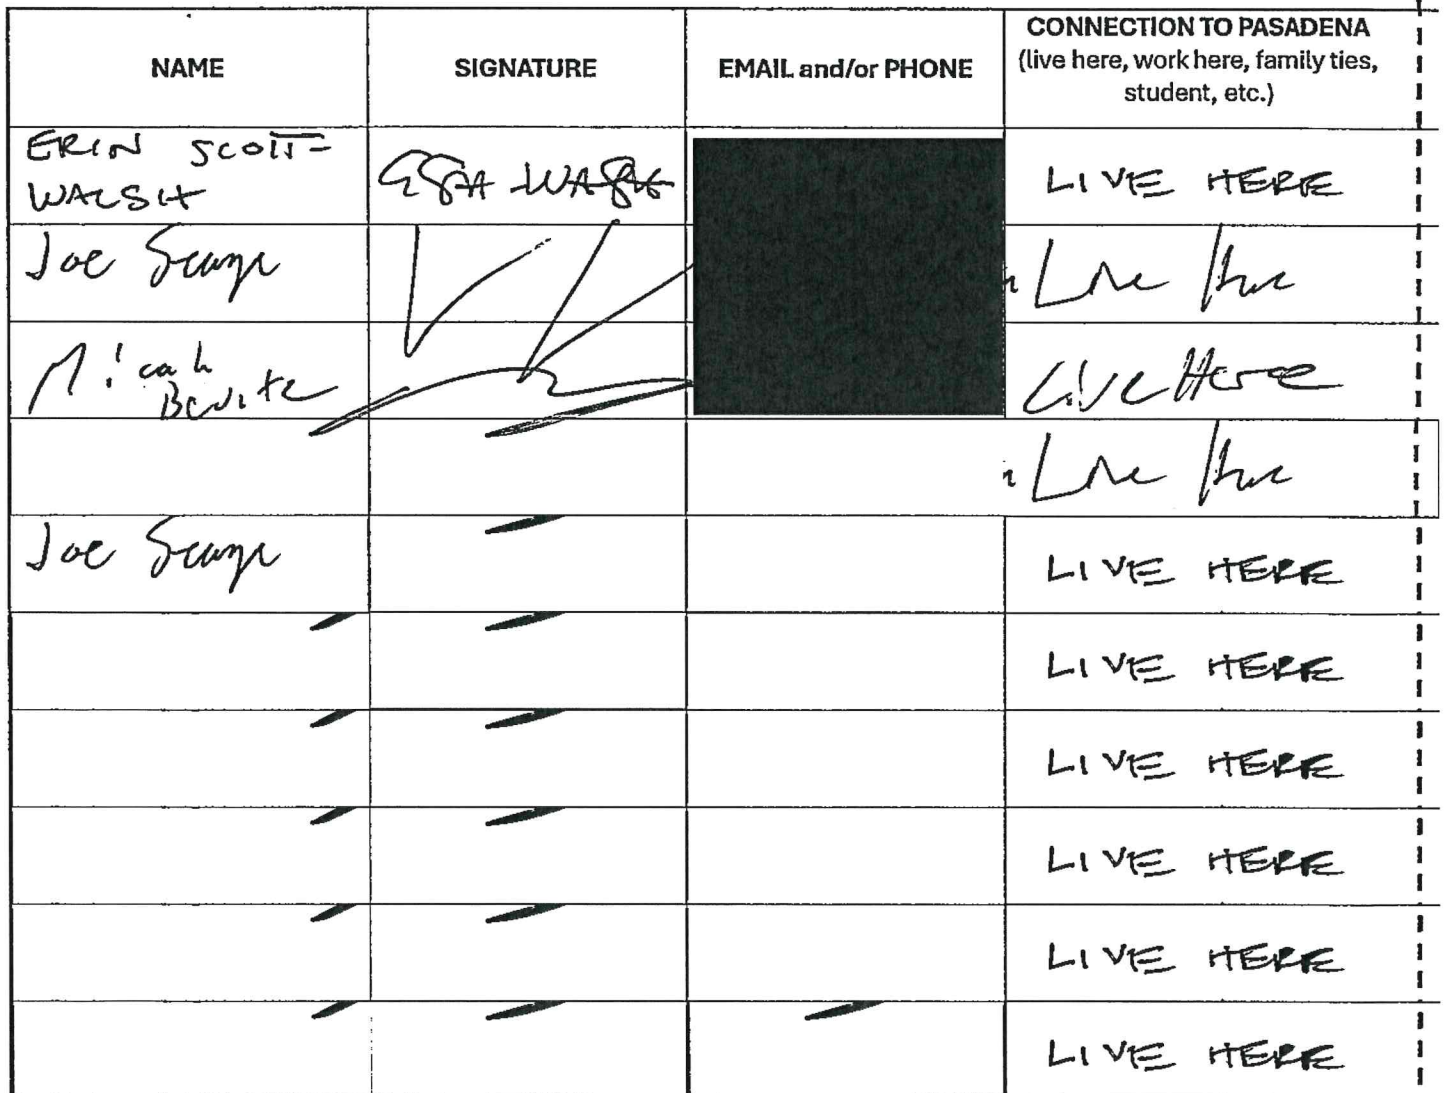 NAME
SIGNATURE
EMAIL and/or PHONE
CONNECTION TO PASADENA
(live here, work here, family ties,
student, etc.)
ERIN SCOTT-
WALSH
LIVE HERE
Joe
Live Here
Micah
Live Here
Live Here
Joe
LIVE HERE
LIVE HERE
LIVE HERE
LIVE HERE
LIVE HERE
LIVE HERE